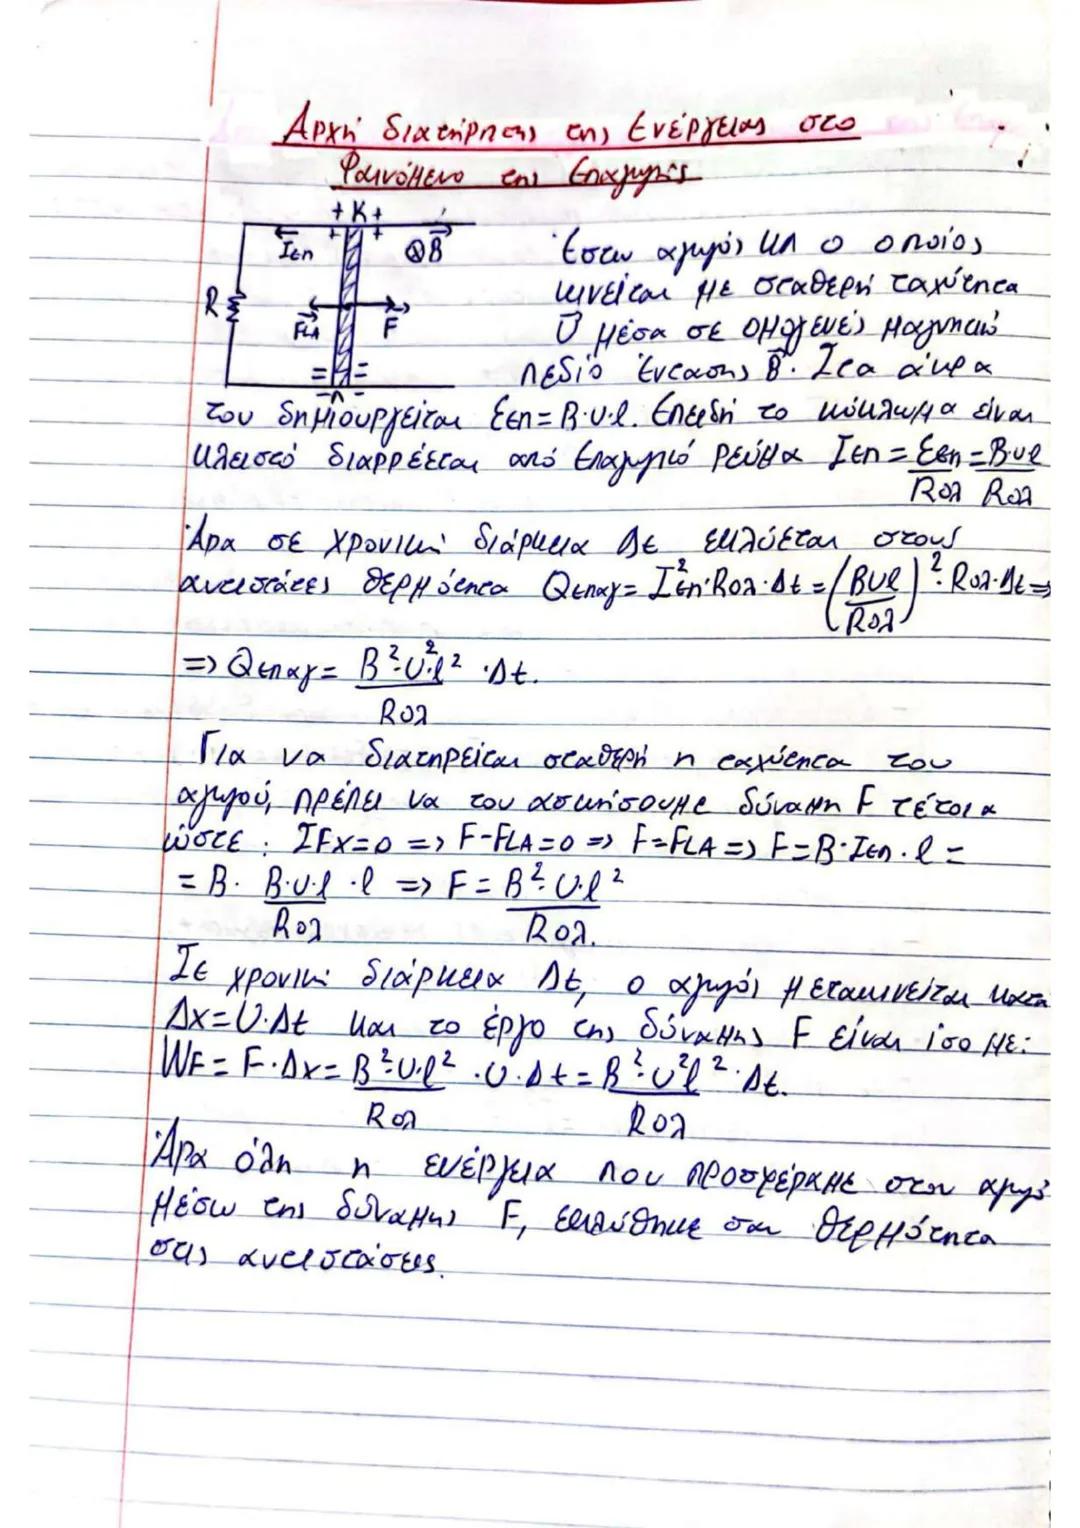 Αρχή διατήρησης της Ενέργειας στο
Φαινόμενο της Επαγωγής
+ K +
+ +
Iεπ
⊗B
R
FLA
F
= =
- Λ -
Έστω αγωγός ΚΛ ο οποίος
κινείται με σταθερή ταχύτητα
υ μέσα σε ομογενές μαγνητικό
πεδίο έντασης B. Στα άκρα
του δημιουργείται Eεπ = B·υ·l. Επειδή το κύκλωμα είναι
κλειστό διαρρέεται από επαγωγικό ρεύμα Iεπ = Eεπ/Rολ = Bυl/Rολ
Άρα σε χρονική διάρκεια Δt εκλύεται στους
αντιστάτες θερμότητα Qεπαγ = I²επ·Rολ·Δt = (Bυl/Rολ)²·Rολ·Δt =>
=> Qεπαγ = B²·υ²·l²/Rολ ·Δt.
Για να διατηρείται σταθερή η ταχύτητα του
αγωγού, πρέπει να του ασκήσουμε δύναμη F τέτοια
ώστε: ΣFx=0 => F-FLA=0 => F=FLA => F=B·Iεπ·l =
= B· B·υ·l/Rολ ·l => F = B²·υ·l²/Rολ.
Σε χρονική διάρκεια Δt, ο αγωγός μετακινείται κατά
Δx=υ·Δt και το έργο της δύναμης F είναι ίσο με:
WF = F·Δx = B²·υ·l²/Rολ ·υ·Δt = B²·υ²l²/Rολ ·Δt.
Άρα όλη η ενέργεια που προσφέραμε στον αγωγό
μέσω της δύναμης F, εκλύθηκε σαν θερμότητα
στις αντιστάσεις.